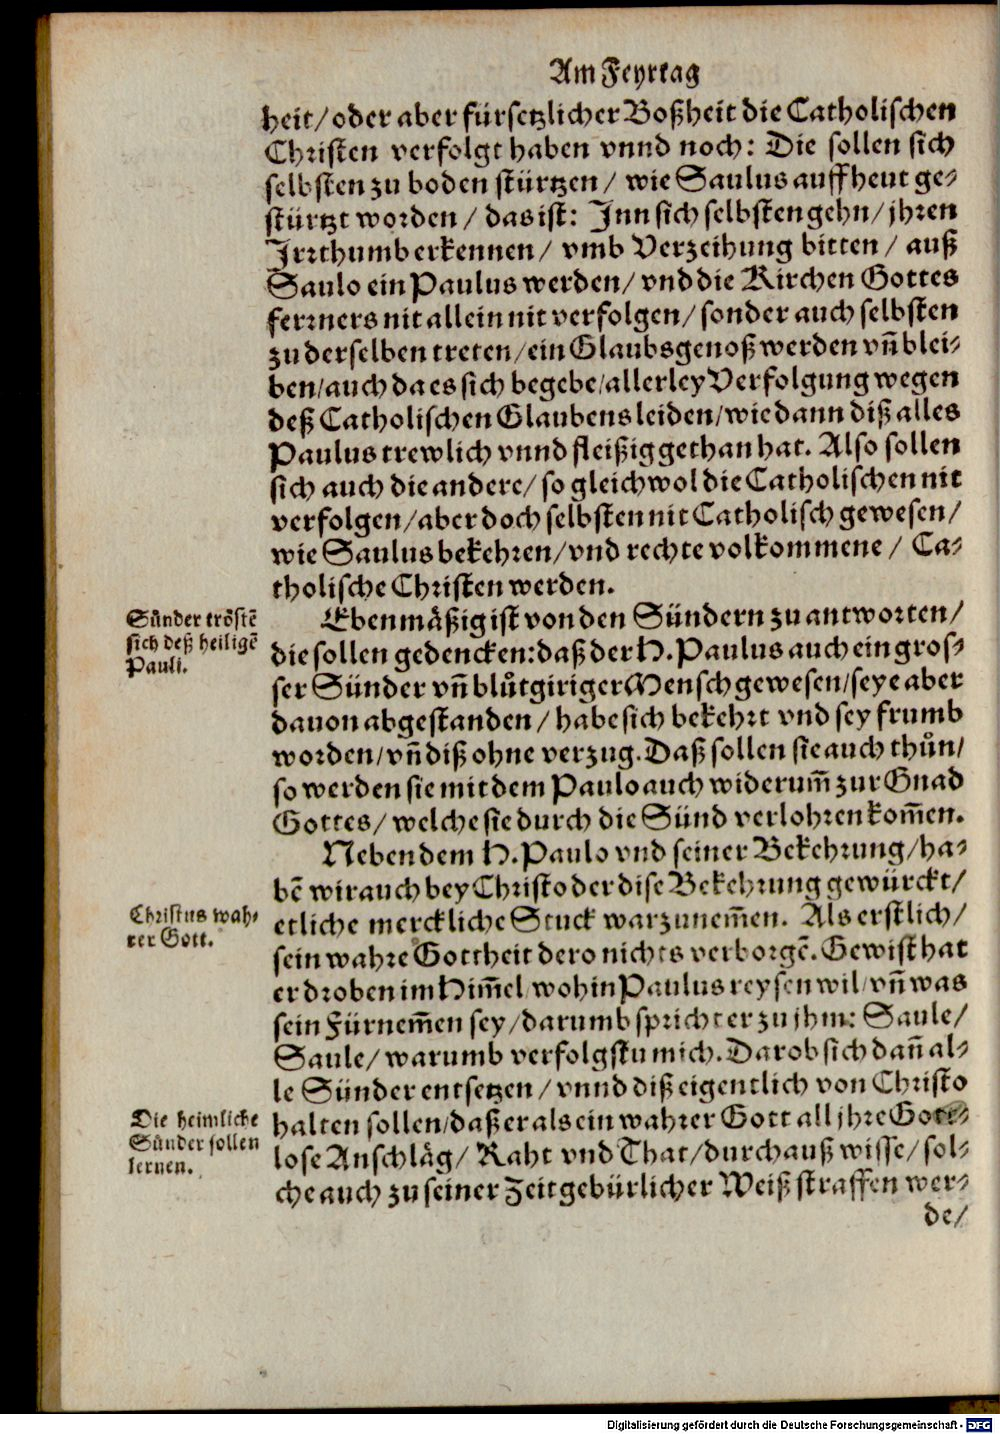 Am Feyrtag
heit/ oder aber fürsetzlicher Boßheit die Catholischen
Christen verfolgt haben vnnd noch: Die sollen sich
selbsten zu boden stürtzen/ wie Saulus auff heut ge-
stürtzt worden/ das ist: Inn sich selbsten gehn/ jhren
Irrthumb erkennen/ vmb Verzeihung bitten/ auß
Saulo ein Paulus werden/ vnd die Kirchen Gottes
ferrners nit allein nit verfolgen/ sonder auch selbsten
zu derselben treten/ ein Glaubsgenoß werden vñ blei-
ben/ auch da es sich begebe/ allerley Verfolgung wegen
deß Catholischen Glaubens leiden/ wie dann diß alles
Paulus trewlich vnnd fleißig gethan hat. Also sollen
sich auch die andere/ so gleichwol die Catholischen nit
verfolgen/ aber doch selbsten nit Catholisch gewesen/
wie Saulus bekehren/ vnd rechte volkommene/ Ca-
tholische Christen werden.
Sünder tröstẽ
sich deß heiligẽ
Pauli.
Ebenmäßig ist von den Sündern zu antworten/
die sollen gedencken: daß der H. Paulus auch ein gros-
ser Sünder vñ blůtgiriger Mensch gewesen/ seye aber
dauon abgestanden/ habe sich bekehrt vnd sey frumb
worden/ vñ diß ohne verzug. Daß sollen sie auch thůn/
so werden sie mit dem Paulo auch widerum̃ zur Gnad
Gottes/ welche sie durch die Sünd verlohren kom̃en.
Neben dem H. Paulo vnd seiner Bekehrung/ ha-
bẽ wir auch bey Christo der dise Bekehrung gewürckt/
Christus wah-
rer Gott.
etliche merckliche Stuck warzunem̃en. Als erstlich/
sein wahre Gottheit dero nichts verborgẽ. Gewist hat
er droben im Him̃el wohin Paulus reysen wil/ vñ was
sein Fürnem̃en sey/ darumb spricht er zu jhm: Saule/
Saule/ warumb verfolgstu mich. Darob sich dañ al-
le Sünder entsetzen/ vnnd diß eigentlich von Christo
Die heimliche
Sünder sollen
lernen.
halten sollen/ daß er als ein wahrer Gott all jhre Gott-
lose Anschläg/ Raht vnd That/ durchauß wisse/ sol-
che auch zu seiner Zeit gebürlicher Weiß straffen wer-
de/
Digitalisierung gefördert durch die Deutsche Forschungsgemeinschaft - DFG